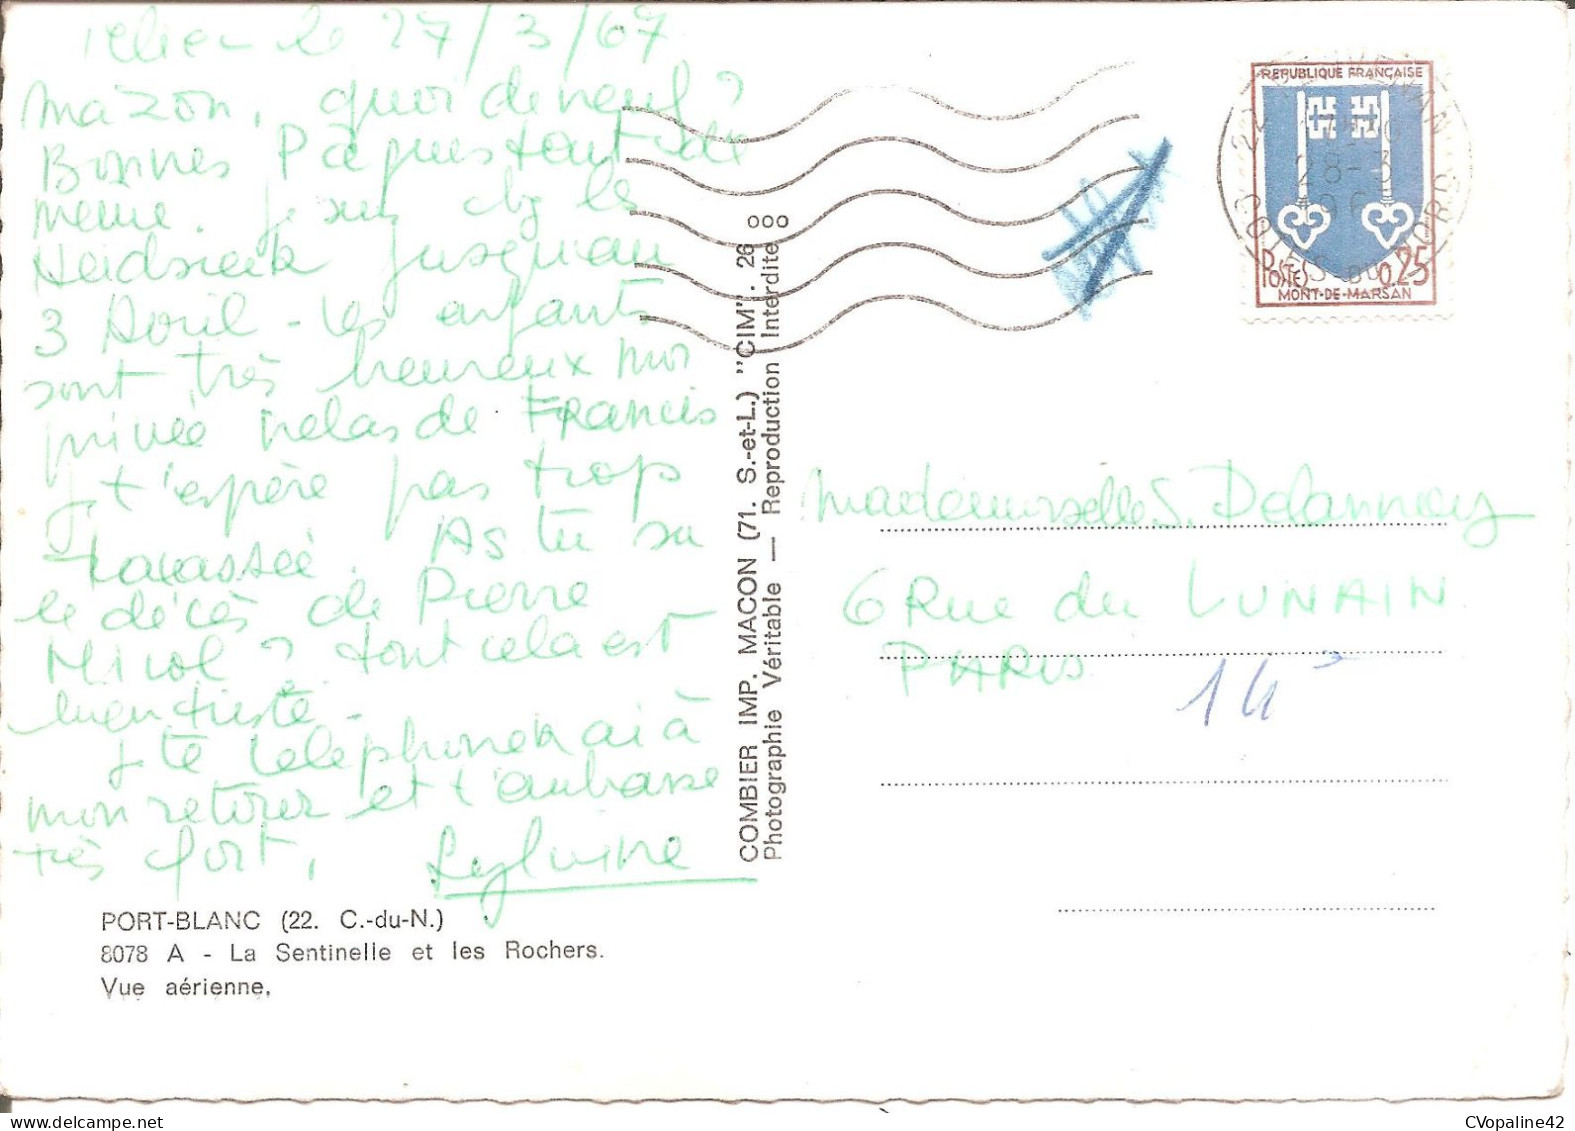 le 27/3/67
mazon, quoi de neuf ?
Bonnes Pâques tout de
même. Je suis chez les
Heidsieck jusqu'au
3 Avril - Les enfants
sont très heureux moi
privée hélas de Francis
J t'espère pas trop
As tu su
le décès de Pierre
Nicol ? tout cela est
bien triste -
J te téléphonerai à
mon retour et t'embrasse
très fort,
Sylvine
PORT-BLANC (22. C.-du-N.)
8078 A - La Sentinelle et les Rochers.
Vue aérienne,
COMBIER IMP. MACON (71. S.-et-L.) "CIM". 26
Photographie Véritable — Reproduction Interdite
REPUBLIQUE FRANÇAISE
POSTES 0,25
MONT-DE-MARSAN
28-3
CÔTES-DU-NORD
Mademoiselle S. Delannoy
6 Rue du LUNAIN
PARIS 14
CVopaline42